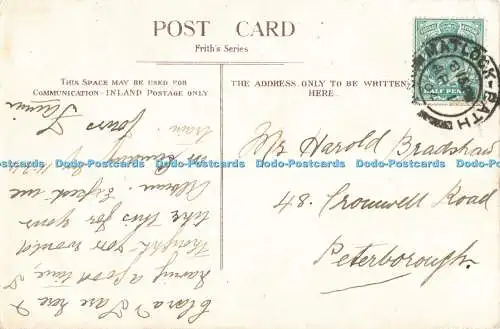 POST CARD
Frith's Series
THIS SPACE MAY BE USED FOR
COMMUNICATION-INLAND POSTAGE ONLY
THE ADDRESS ONLY TO BE WRITTEN
HERE.
Clara & I are here &
having a good time, I
thought you would
like this for your
Album. Expect me
on Sunday by
train.
Yours
Mr Harold Bradshaw
48. Cromwell Road
Peterborough.
MATLOCK-BATH
HALF PENNY
Dodo-Postcards Dodo-Postcards Dodo-Postcards Dodo-Postcards Dodo-Postcards